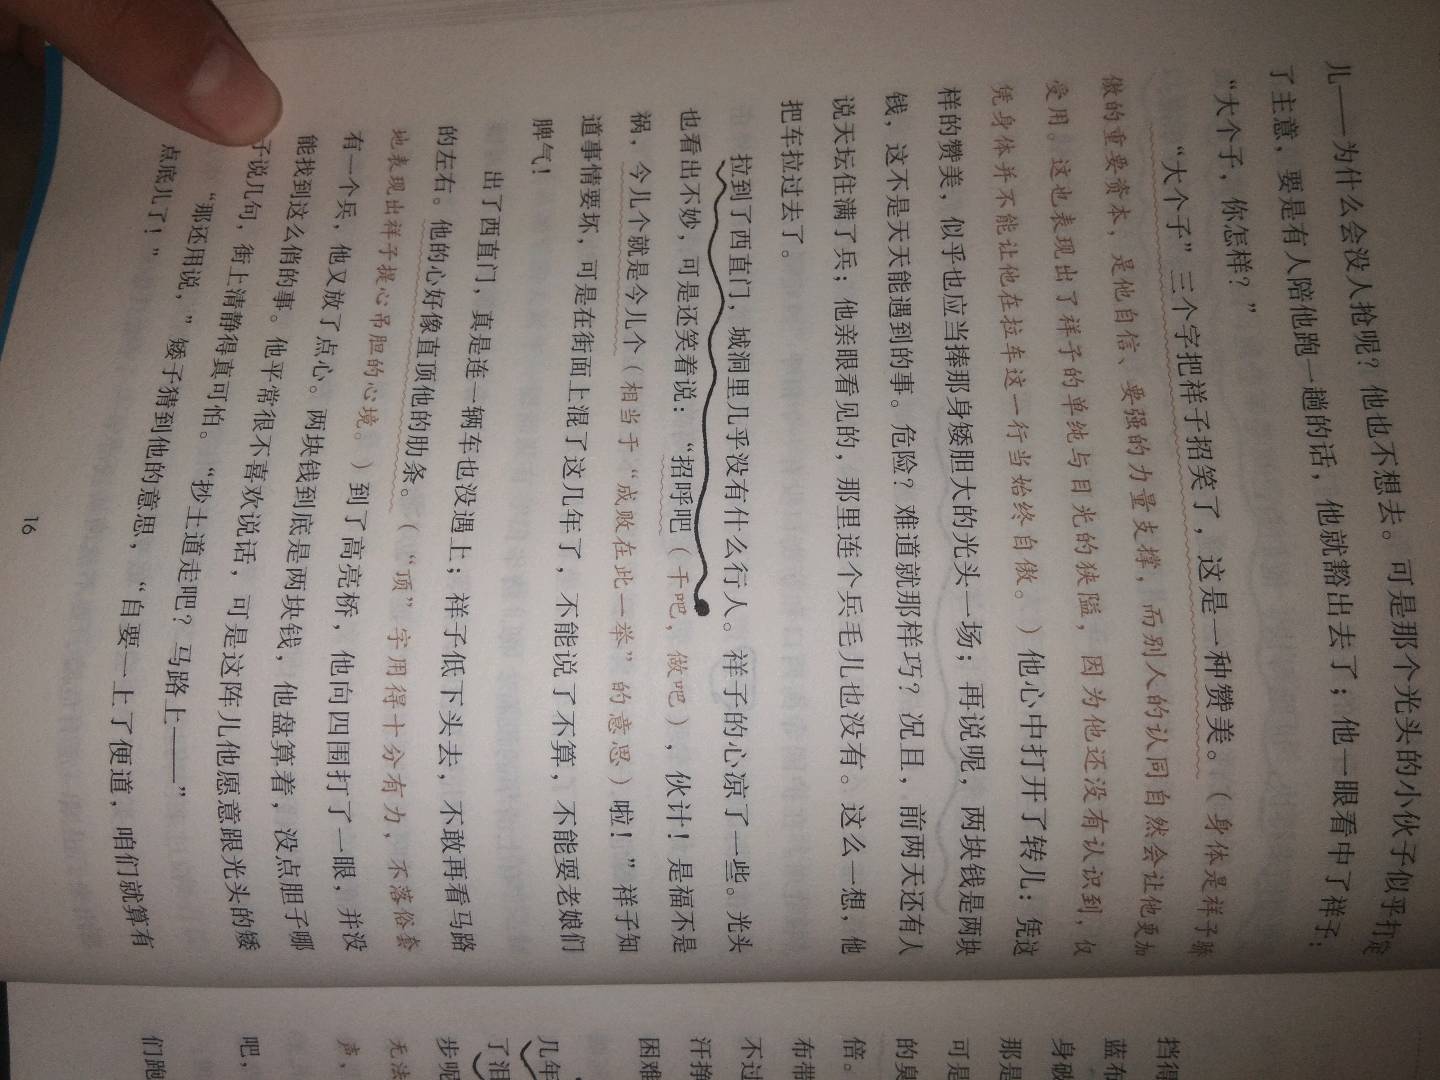 儿——为什么会没人抢呢？他也不想去。可是那个光头的小伙子似乎打定
了主意，要是有人陪他跑一趟的话，他就豁出去了；他一眼看中了祥子：
“大个子，你怎样？”
“大个子”三个字把祥子招笑了，这是一种赞美。（身体是祥子骄
傲的重要资本，是他自信、要强的力量支撑，而别人的认同自然会让他更加
受用。这也表现出了祥子的单纯与目光的狭隘，因为他还没有认识到，仅
凭身体并不能让他在拉车这一行当始终自傲。）他心中打开了转儿：凭这
样的赞美，似乎也应当捧那身矮胆大的光头一场；再说呢，两块钱是两块
钱，这不是天天能遇到的事。危险？难道就那样巧？况且，前两天还有人
说天坛住满了兵；他亲眼看见的，那里连个兵毛儿也没有。这么一想，他
把车拉过去了。
拉到了西直门，城洞里几乎没有什么行人。祥子的心凉了一些。光头
也看出不妙，可是还笑着说：“招呼吧（干吧，做吧），伙计！是福不是
祸，今儿个就是今儿个（相当于“成败在此一举”的意思）啦！”祥子知
道事情要坏，可是在街面上混了这几年了，不能说了不算，不能耍老娘们
脾气！
出了西直门，真是连一辆车也没遇上；祥子低下头去，不敢再看马路
的左右。他的心好像直顶他的肋条。（“顶”字用得十分有力，不落俗套
地表现出祥子提心吊胆的心境。）到了高亮桥，他向四围打了一眼，并没
有一个兵，他又放了点心。两块钱到底是两块钱，他盘算着，没点胆子哪
能找到这么俏的事。他平常很不喜欢说话，可是这阵儿他愿意跟光头的矮
子说几句，街上清静得真可怕。“抄土道走吧？马路上——”
“那还用说，”矮子猜到他的意思，“自要一上了便道，咱们就算有
点底儿了！”
16
挡得
蓝布
身破
那是
可是
的臭
倍。
布带
不过
汗挣
困难
几年
了泪
步呢
无法
声，
吧，
们跑